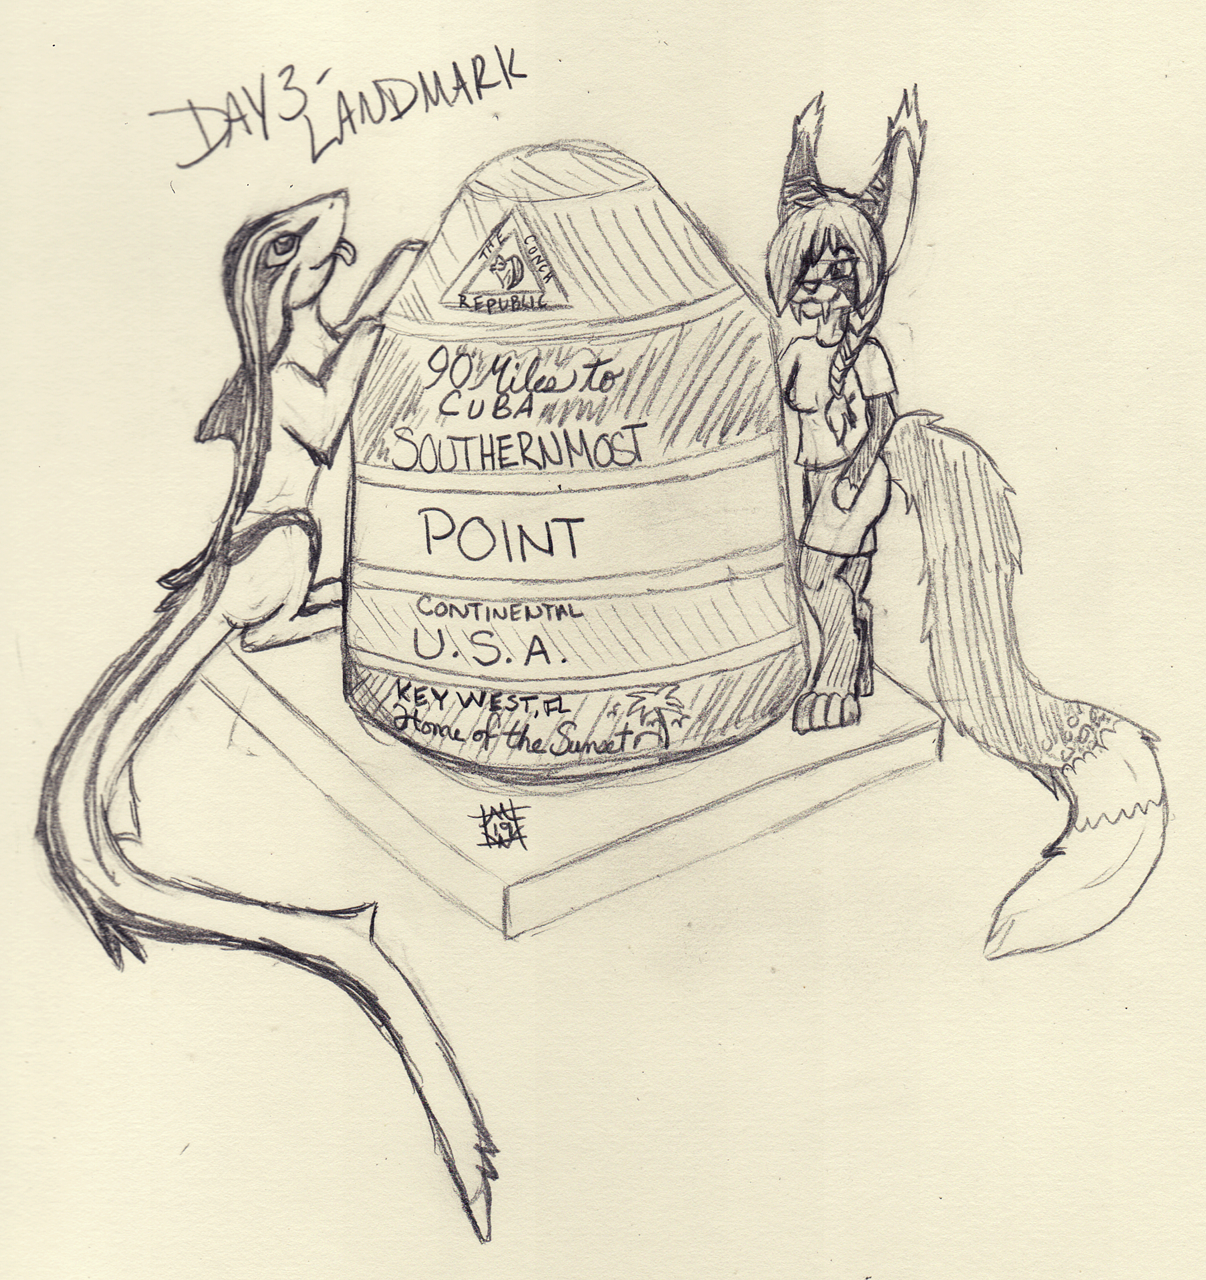 DAY 3-
LANDMARK
THE CONCH
REPUBLIC
90 Miles to
CUBA
SOUTHERNMOST
POINT
CONTINENTAL
U.S.A.
KEY WEST, FL
Home of the Sunset